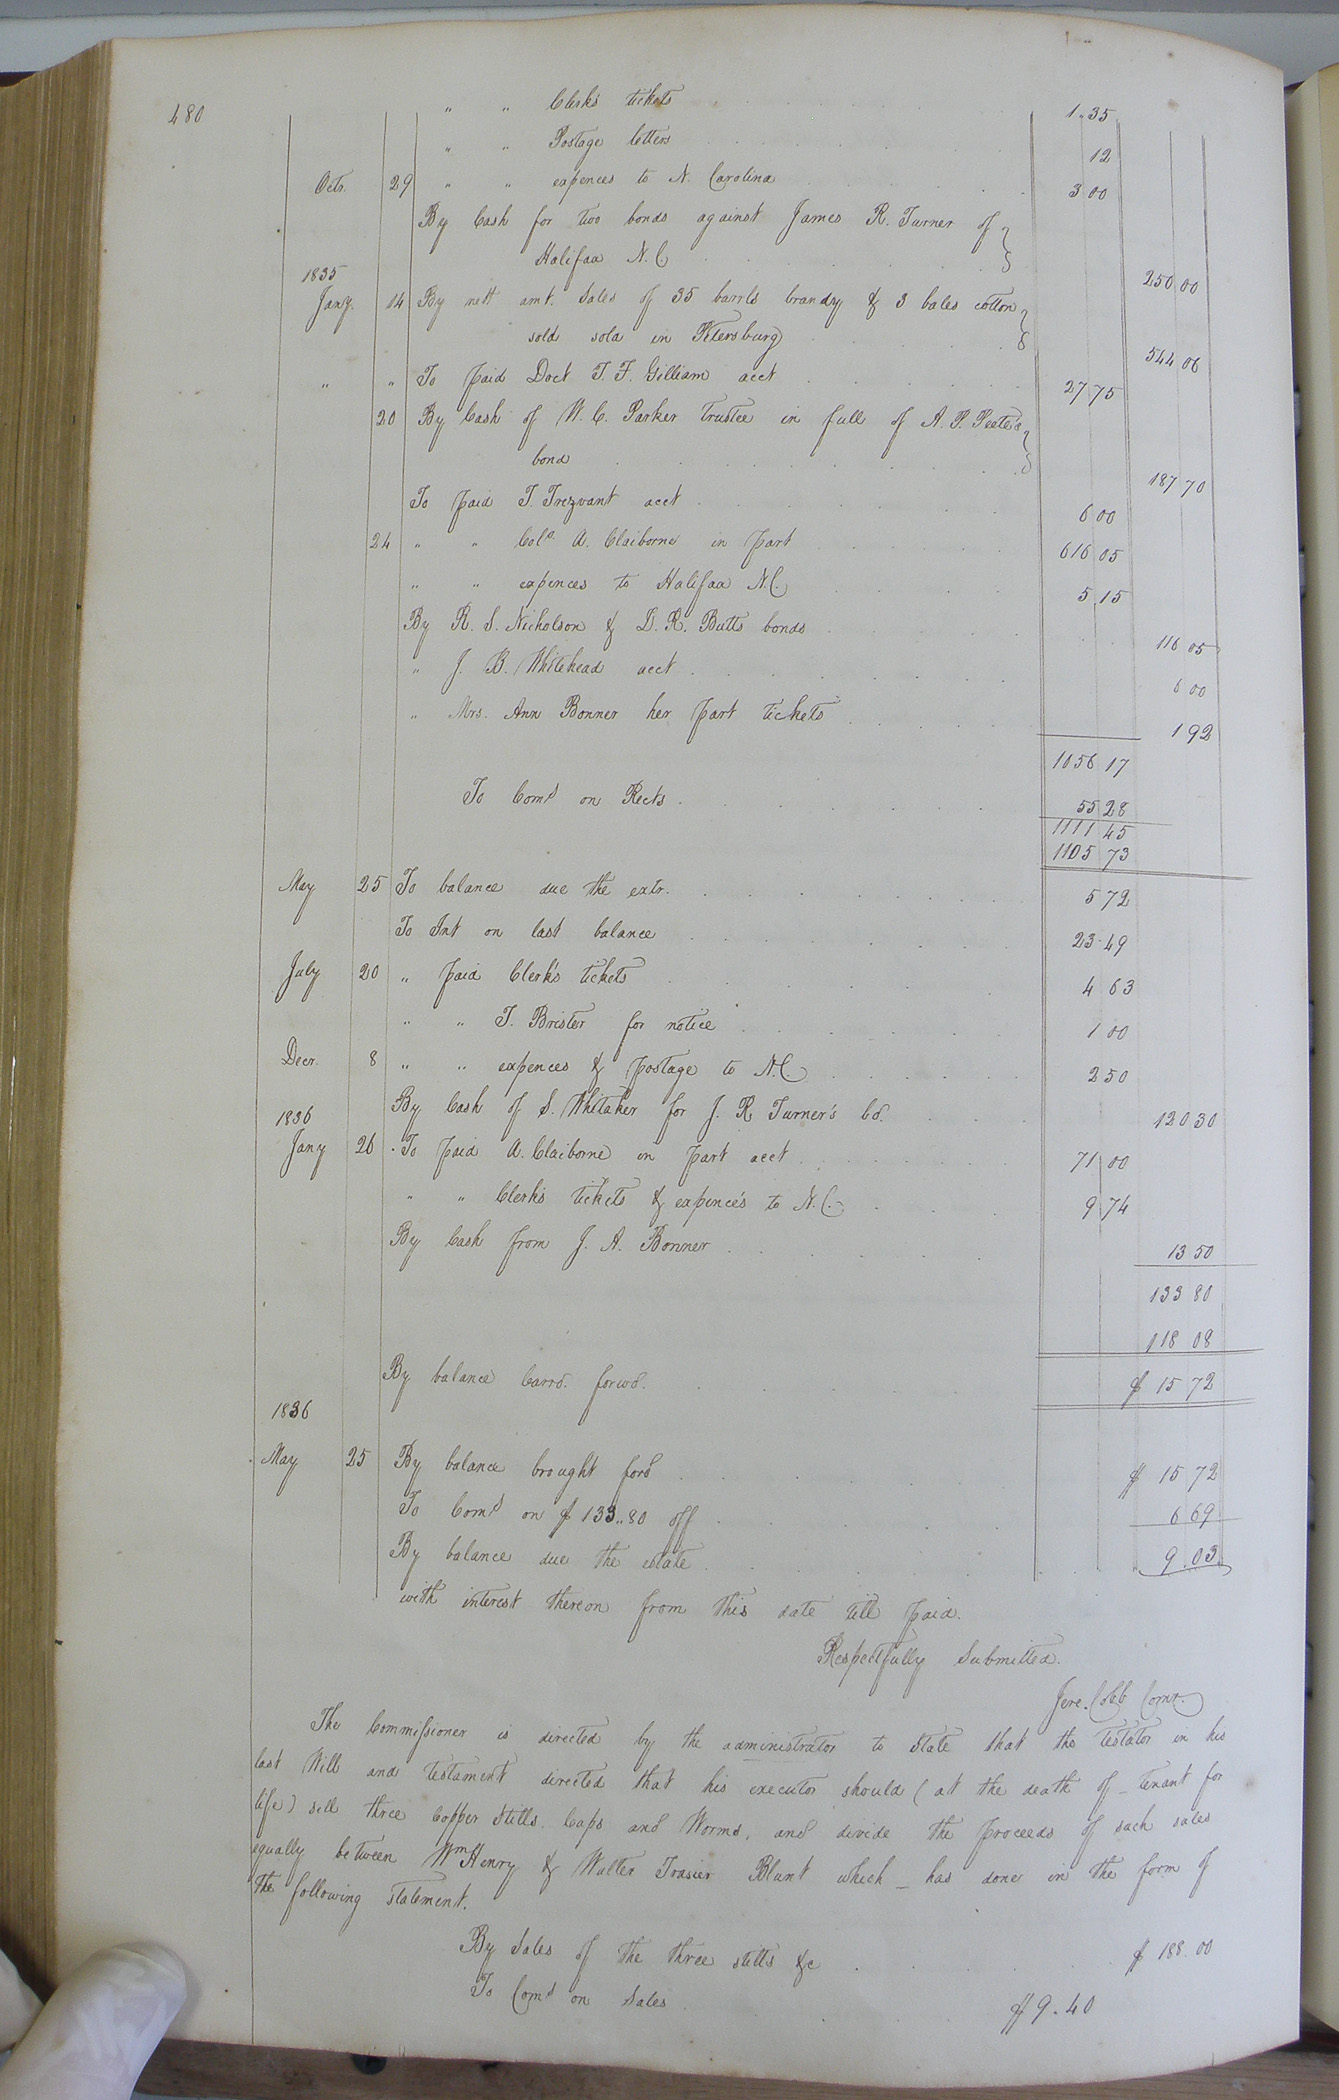 480
" " Clerks tickets 1.35
" " Postage letters 12
Octr. 29 " " expences to N. Carolina 3 00
By Cash for two bonds against James R. Turner of
Halifax N.C. 250 00
1835
Jany. 14 By nett amt. Sales of 35 barrls brandy & 3 bales cotton
sold sold in Petersburg 544 06
" " To paid Doct T. F. Gilliam acct 27 75
20 By Cash of W. C. Parker Trustee in full of A. P. Peete's
bond 187 70
To paid T. Trezvant acct 6 00
24 " " Colo. A. Claiborne in part 616 05
" " expences to Halifax N.C. 5 15
By R. S. Nicholson & D. R. Butts bonds 116 05
" J. B. Whitehead acct 6 00
" Mrs. Ann Bonner her part tickets 1 92
1056 17
To Comd on Rects 55 28
1111 45
1105 73
May 25 To balance due the extr. 5 72
To Int on last balance 23.49
July 20 " paid Clerk's tickets 4 63
" " T. Brister for notice 1 00
Decr. 8 " " expences & postage to N.C. 2 50
By Cash of S. Whitaker for J. R Turner's bd. 120 30
1836
Jany 26 To paid A. Claiborne in part acct 71 00
" " Clerk's tickets & expence's to N.C. 9 74
By Cash from J. A. Bonner 13 50
133 80
118 08
By balance Carrd. forwd. $ 15 72
1836
May 25 By balance brought ford $ 15 72
To Comd on $ 133..80 off 6 69
By balance due the estate 9.03
with interest thereon from this date till paid.
Respectfully Submitted.
Jere. Cobb Comr.
The Commissioner is directed by the administrator to State that the testator in his
last Will and testament directed that his executor should (at the death of _ tenant for
life) sell three Copper Stills. Caps and Worms, and divide the proceeds of such sales
equally between Wm Henry & Walter Frasier Blunt which _ has done in the form of
the following statement.
By Sales of the three stills &c $ 188.00
To Comd on Sales $ 9.40